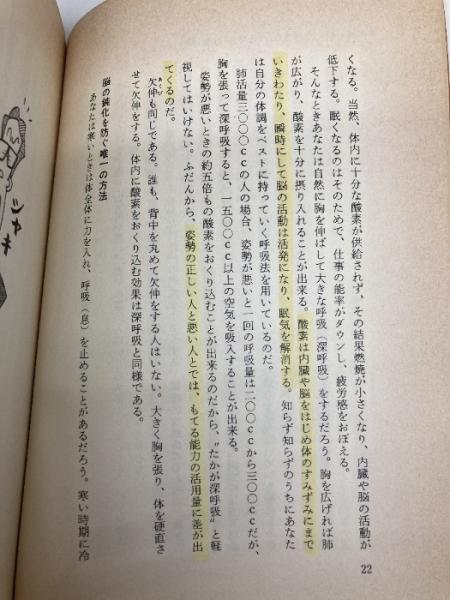 くなる。当然、体内に十分な酸素が供給されず、その結果燃焼が小さくなり、内臓や脳の活動が
低下する。眠くなるのはそのためで、仕事の能率がダウンし、疲労感をおぼえる。
そんなときあなたは自然に胸を伸ばして大きな呼吸（深呼吸）をするだろう。胸を広げれば肺
が広がり、酸素を十分に摂り入れることが出来る。酸素は内臓や脳をはじめ体のすみずみにまで
いきわたり、瞬時にして脳の活動は活発になり、眠気を解消する。知らず知らずのうちにあなた
は自分の体調をベストに持っていく呼吸法を用いているのだ。
肺活量三〇〇〇ccの人の場合、姿勢が悪いと一回の呼吸量は二〇〇ccから三〇〇ccだが、
胸を張って深呼吸すると、一五〇〇cc以上の空気を吸入することが出来る。
姿勢が悪いときの約五倍もの酸素をおくり込むことが出来るのだから、〝たかが深呼吸〟と軽
視してはいけない。ふだんから、姿勢の正しい人と悪い人とでは、もてる能力の活用量に差が出
てくるのだ。
欠伸も同じである。誰も、背中を丸めて欠伸をする人はいない。大きく胸を張り、体を硬直さ
せて欠伸をする。体内に酸素をおくり込む効果は深呼吸と同様である。
脳の鈍化を防ぐ唯一の方法
あなたは寒いときは体全体に力を入れ、呼吸（息）を止めることがあるだろう。寒い時期に冷
シャキ
22